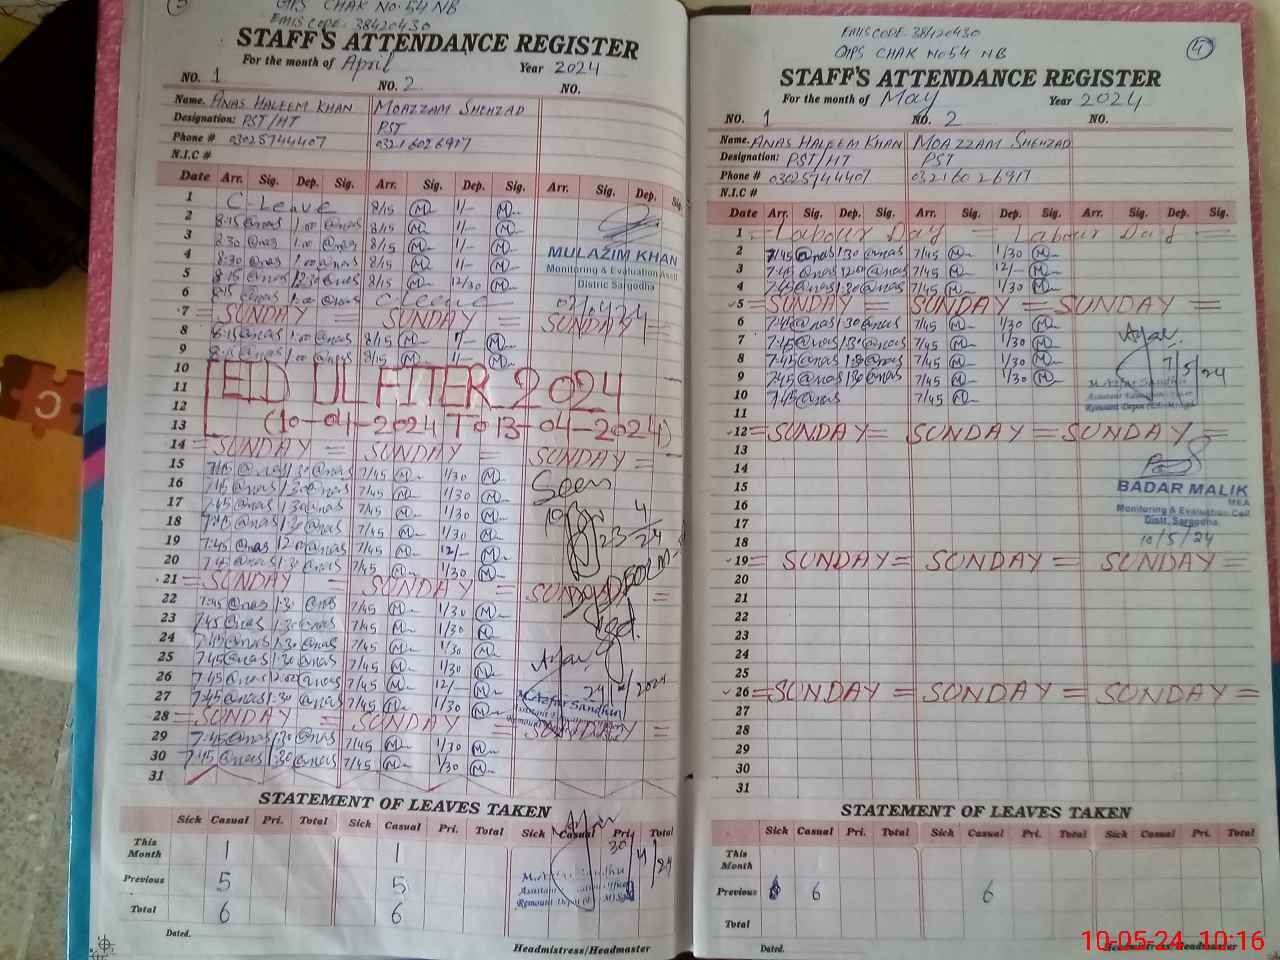 GPS CHAK No. 54 NB
EMIS CODE. 38420430
STAFF'S ATTENDANCE REGISTER
For the month of April Year 2024
NO. 1 NO. 2 NO.
Name. ANAS HALEEM KHAN MOAZZAM SHEHZAD
Designation: PST/HT PST
Phone # 03025744407 03216026917
N.I.C #
Date Arr. Sig. Dep. Sig. Arr. Sig. Dep. Sig. Arr. Sig. Dep. Sig.
1 C-Leave 8/15 M 1/- M
2 8:15 @nas 1:00 @nas 8/15 M 1/- M
3 8:30 @nas 1:00 @nas 8/15 M 1/- M
4 8:30 @nas 1:00 @nas 8/15 M 1/- M
MULAZIM KHAN
Monitoring & Evaluation Asstt
Distric Sargodha
5 8:15 @nas 12:30 @nas 8/15 M 12/30 M
6 8:15 @nas 1:00 @nas C Leave
7 = SUNDAY = SUNDAY = SUNDAY =
8 8:15 @nas 1:00 @nas 8/15 M 1/- M
9 8:15 @nas 1:00 @nas 8/15 M 1/- M
10
11 EID UL FITER 2024
12
13 (10-04-2024 To 13-04-2024)
14 = SUNDAY = SUNDAY = SUNDAY =
15 7:45 @nas 1:30 @nas 7/45 M 1/30 M
16 7:45 @nas 1:30 @nas 7/45 M 1/30 M Seen
17 7:45 @nas 1:30 @nas 7/45 M 1/30 M
18 7:45 @nas 1:30 @nas 7/45 M 1/30 M
19 7:45 @nas 12:00 @nas 7/45 M 12/- M
20 7:45 @nas 1:30 @nas 7/45 M 1/30 M
21 = SUNDAY = SUNDAY = SUNDAY =
22 7:45 @nas 1:30 @nas 7/45 M 1/30 M
23 7:45 @nas 1:30 @nas 7/45 M 1/30 M
24 7:45 @nas 1:30 @nas 7/45 M 1/30 M
25 7:45 @nas 1:30 @nas 7/45 M 1/30 M
26 7:45 @nas 12:00 @nas 7/45 M 12/- M
27 7:45 @nas 1:30 @nas 7/45 M 1/30 M
28 = SUNDAY = SUNDAY = SUNDAY =
29 7:45 @nas 1:30 @nas 7/45 M 1/30 M
30 7:45 @nas 1:30 @nas 7/45 M 1/30 M
31
STATEMENT OF LEAVES TAKEN
Sick Casual Pri. Total Sick Casual Pri. Total Sick Casual Pri. Total
This Month 1 1
Previous 5 5
Total 6 6
Dated.
Headmistress/Headmaster
EMIS CODE 38420430
GPS CHAK No 54 NB
4
STAFF'S ATTENDANCE REGISTER
For the month of May Year 2024
NO. 1 NO. 2 NO.
Name. ANAS HALEEM KHAN MOAZZAM SHEHZAD
Designation: PST/HT PST
Phone # 03025744407 03216026917
N.I.C #
Date Arr. Sig. Dep. Sig. Arr. Sig. Dep. Sig. Arr. Sig. Dep. Sig.
1 = Labour Day = Labour Day =
2 7:45 @nas 1:30 @nas 7/45 M 1/30 M
3 7:45 @nas 12:00 @nas 7/45 M 12/- M
4 7:45 @nas 1:30 @nas 7/45 M 1/30 M
5 = SUNDAY = SUNDAY = SUNDAY =
6 7:45 @nas 1:30 @nas 7/45 M 1/30 M
7 7:45 @nas 1:30 @nas 7/45 M 1/30 M
8 7:45 @nas 1:30 @nas 7/45 M 1/30 M 7/5/24
9 7:45 @nas 1:30 @nas 7/45 M 1/30 M
10 7:45 @nas 7/45 M
11
12 = SUNDAY = SUNDAY = SUNDAY =
13
14
15 BADAR MALIK
MEA
16 Monitoring & Evaluation Cell
17 Distt. Sargodha
18 10/5/24
19 = SUNDAY = SUNDAY = SUNDAY =
20
21
22
23
24
25
26 = SUNDAY = SUNDAY = SUNDAY =
27
28
29
30
31
STATEMENT OF LEAVES TAKEN
Sick Casual Pri. Total Sick Casual Pri. Total Sick Casual Pri. Total
This Month
Previous 6 6
Total
Dated.
Headmistress/Headmaster
10-05-24 10:16